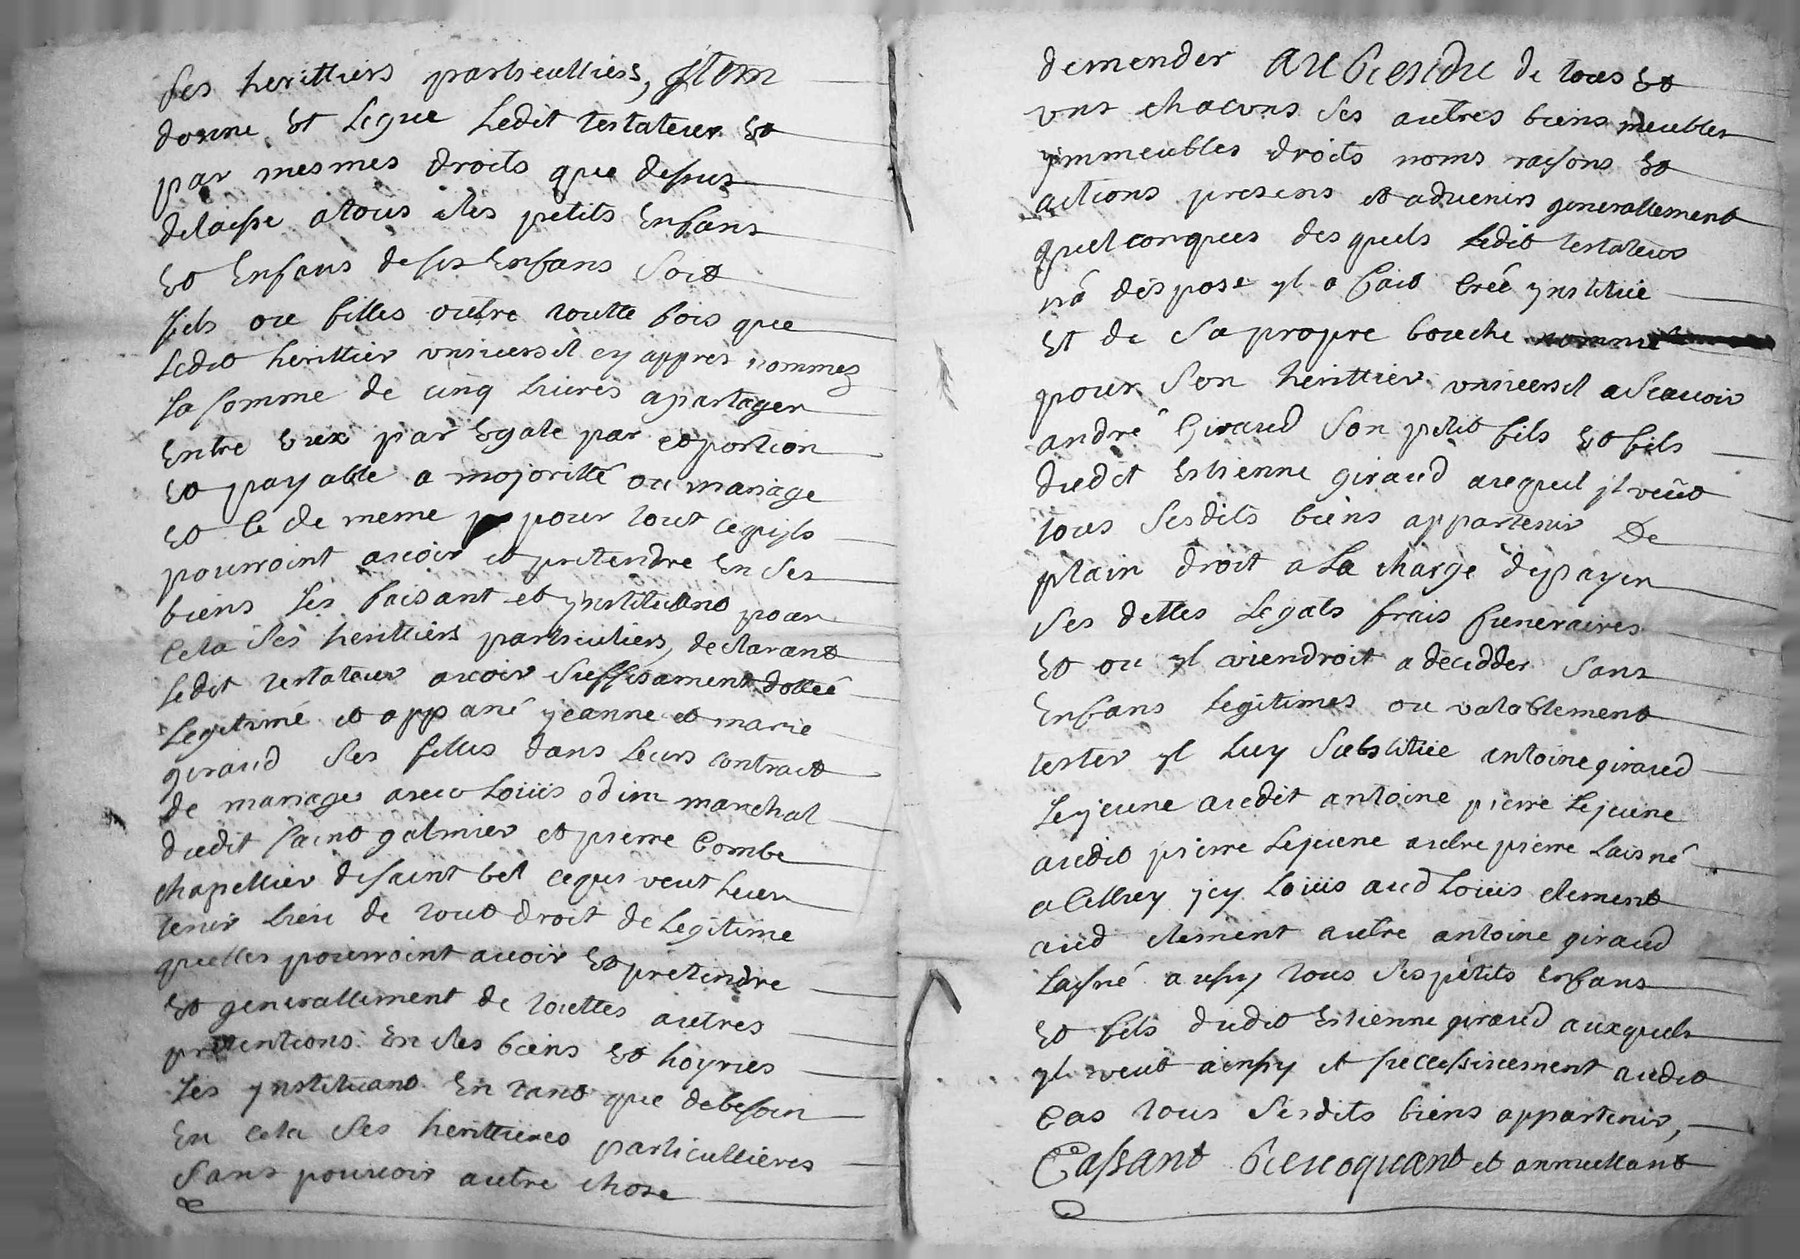 ses herittiers particulliers, Jtem
donne et legue ledit testateur et
par mesmes droits que dessus
delaisse a tous ses petits enfans
et enfans de ses enfans soit
fils ou filles outre toutte fois que
ledit herittier vniversel cy apprés nommez
la somme de cinq livres a partager
entre eux par egale par et portion
et payable a majoritté ou mariage
et ce de meme pour tout ce quils
pourroint avoir et pretendre en ses
biens les faisant et ynstituant pour
cela ses herittiers particuliers, declarant
ledit testateur avoir suffisament dotteé
legitimé et appané yeanne et marie
giraud ses filles dans leurs contract
de mariage avec Loüis odin marechal
dudit saint galmier et pierre Combe
chapellier de saint bel ce qui veut leur
tenir lieu de tout droit de legitime
quelles pourroint avoir et pretendre
et generallement de touttes autres
pretentions en ses biens et hoyries
les ynstituant en tant que de besoin
en cela ses herittieres particullieres
sans pouvoir autre chose
demender au residu de tous et
vns chacuns ses autres biens meubles
ymmeubles droits noms raisons et
actions presens et advenirs generallement
quelconques desquels ledit testateur
na disposé yl a fait creé ynstitüe
et de sa propre bouche nommé
pour son herittier vniversel a scavoir
andré Giraud son petit fils et fils
dudit estienne giraud auquel yl veut
tous sesdits biens appartenir De
plain droit a La charge de payer
ses dettes legats frais funeraires
et ou yl viendroit a decedder sans
enfans legitimes ou valablement
tester yl luy substitüe antoine giraud
lejeune audit antoine pierre lejeune
audit pierre lejeune autre pierre laisné
a celluy jcy Loüis aud Loüis clement
aud clement autre antoine giraud
laisné aussy tous ses petits enfans
et fils dudit estienne giraud auxquels
yl veut ainsy et successivement audit
cas tous sesdits biens appartenir,
Cassant revoquant et annullant